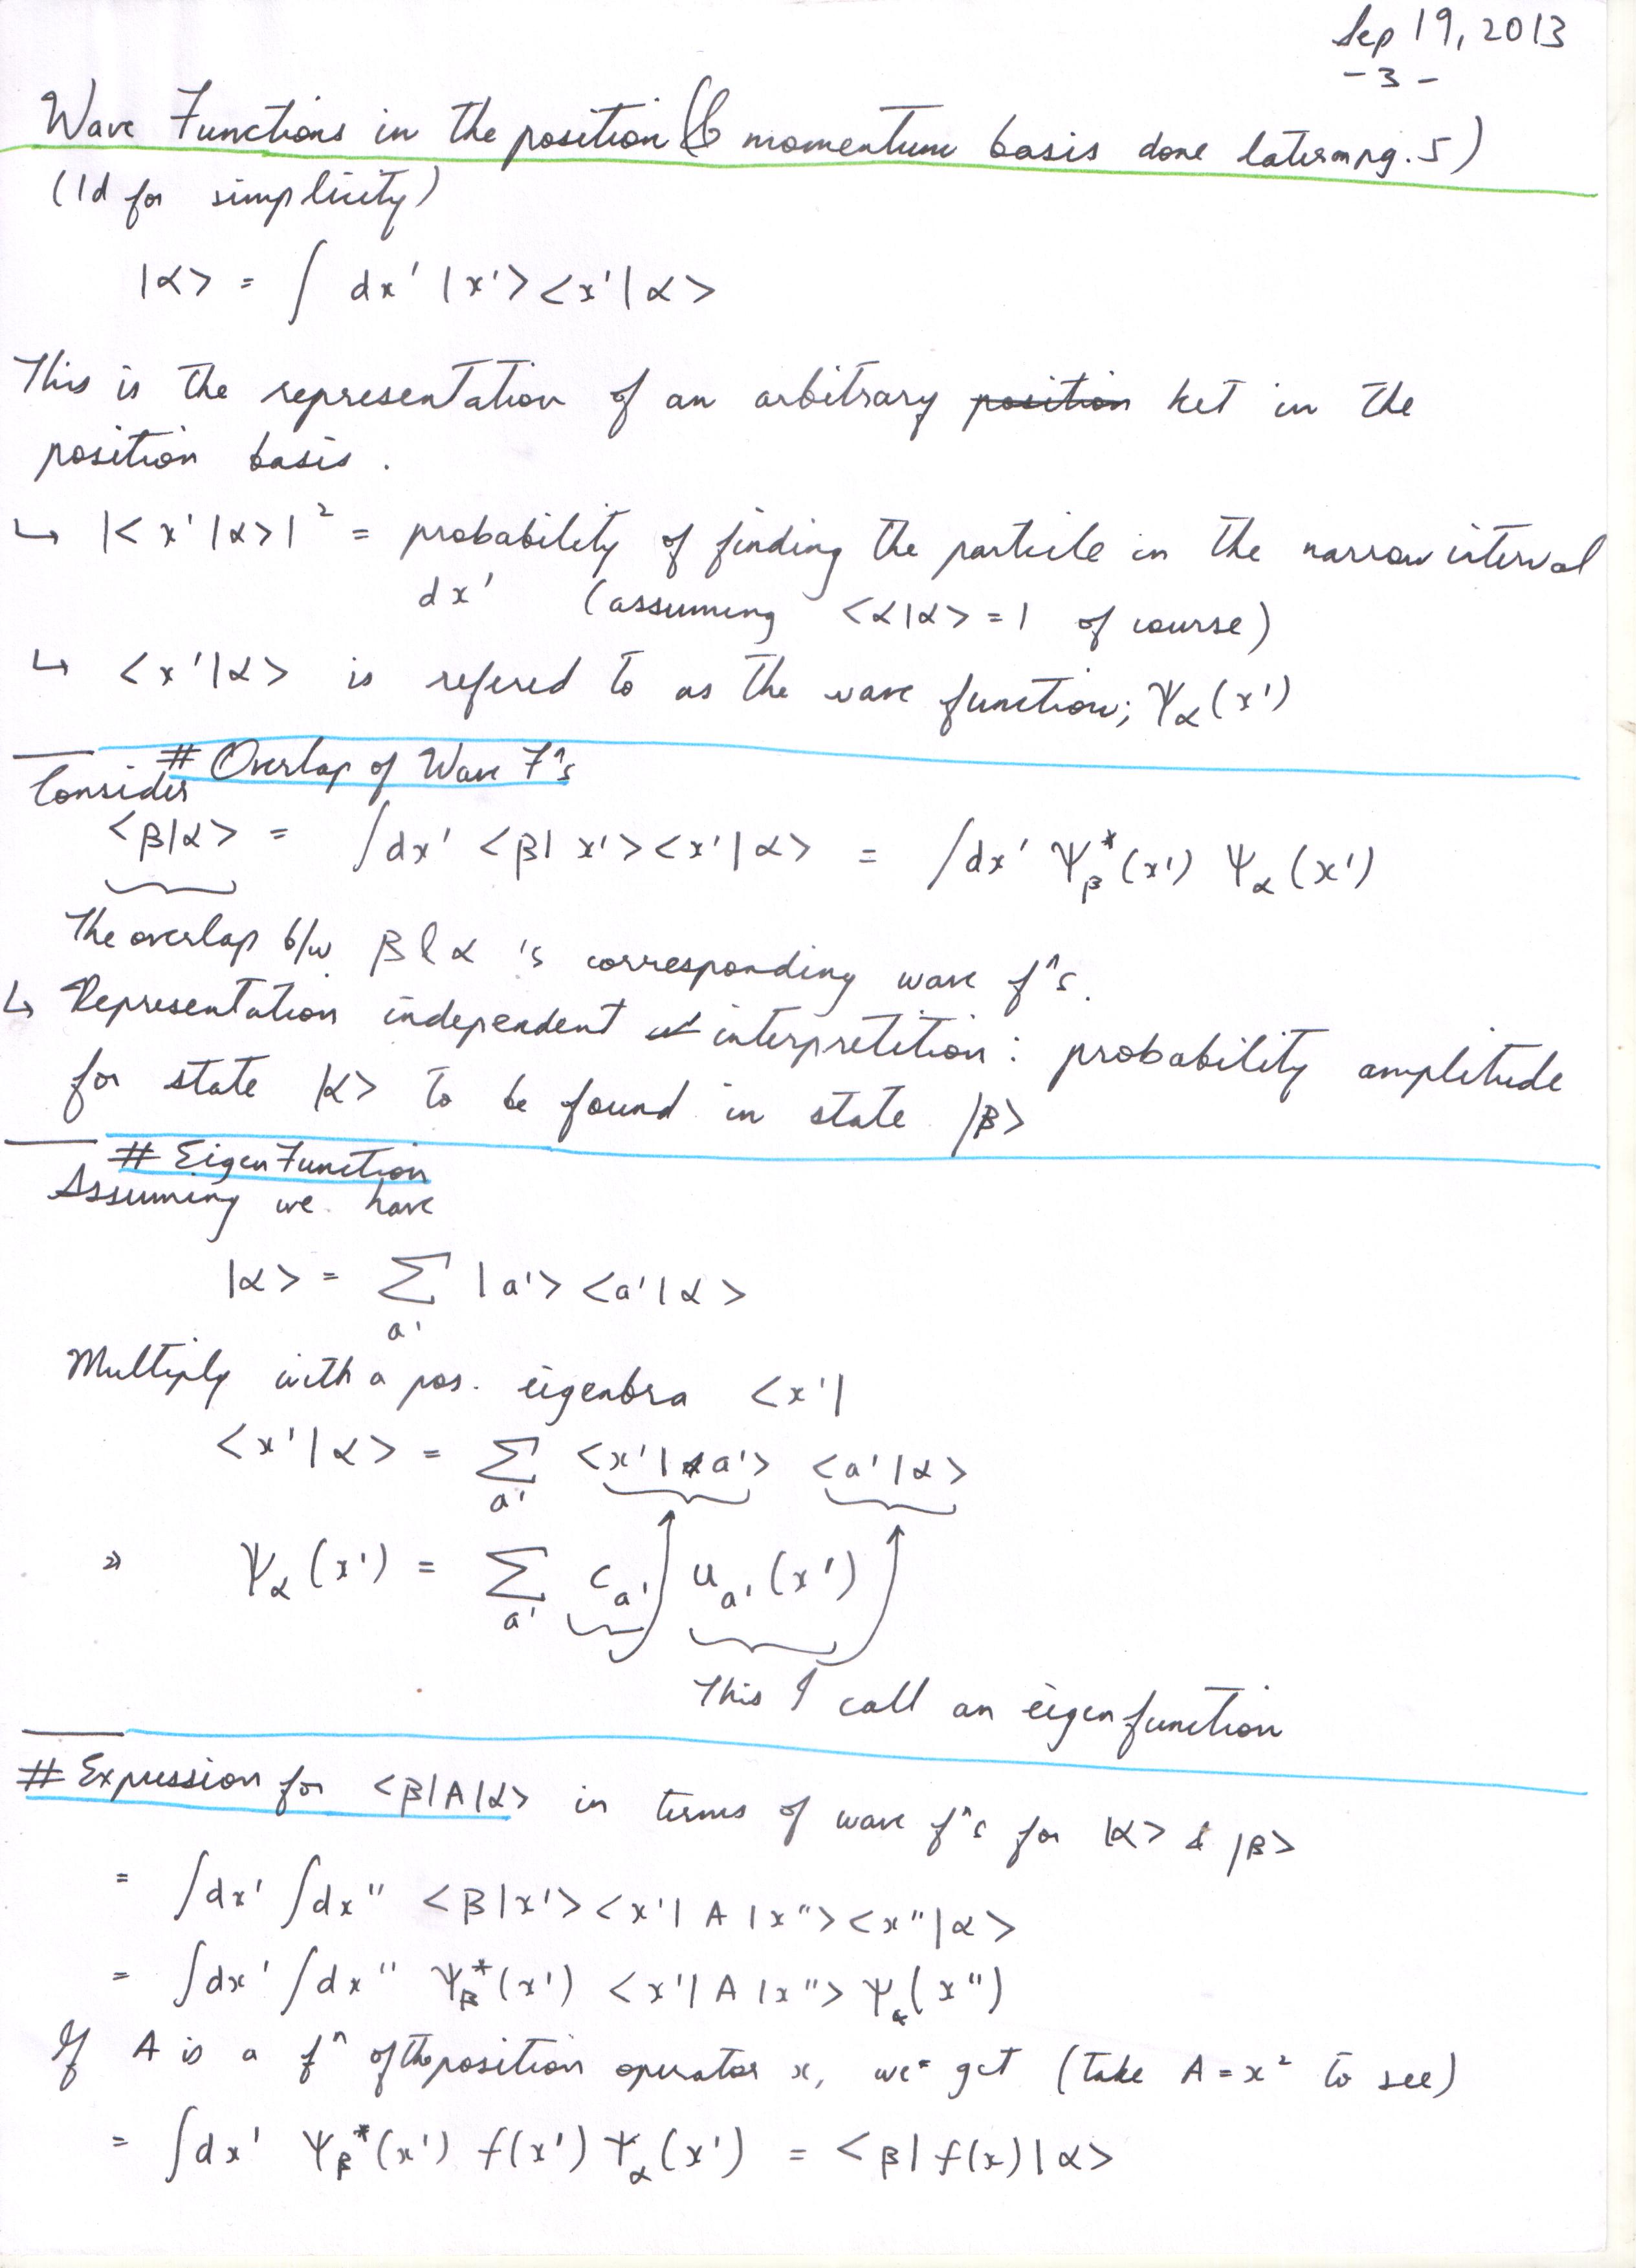 Sep 19, 2013
- 3 -
Wave Functions in the position (& momentum basis done later on pg. 5)
(1d for simplicity)
|α> = ∫ dx' |x'><x'|α>
This is the representation of an arbitrary position ket in the
position basis.
↳ |<x'|α>|² = probability of finding the particle in the narrow interval
dx' (assuming <α|α> = 1 of course)
↳ <x'|α> is refered to as the wave function; Ψα(x')
# Overlap of Wave Fⁿs
Consider
<β|α> = ∫dx' <β|x'><x'|α> = ∫dx' Ψβ*(x') Ψα(x')
The overlap b/w β & α 's corresponding wave fⁿs.
↳ Representation independent interpretition : probability amplitude
for state |α> to be found in state |β>
# Eigen Function
Assuming we have
|α> = Σ |a'><a'|α>
a'
Multiply with a pos. eigenbra <x'|
<x'|α> = Σ <x'|a'> <a'|α>
a'
» Ψα(x') = Σ ca' ua'(x')
a'
This I call an eigenfunction
# Expression for <β|A|α> in terms of wave fⁿs for |α> & |β>
= ∫dx' ∫dx" <β|x'><x'|A|x"><x"|α>
= ∫dx' ∫dx" Ψβ*(x') <x'|A|x"> Ψα(x")
If A is a fⁿ of the position operator x, we get (take A = x² to see)
= ∫dx' Ψβ*(x') f(x') Ψα(x') = <β|f(x)|α>